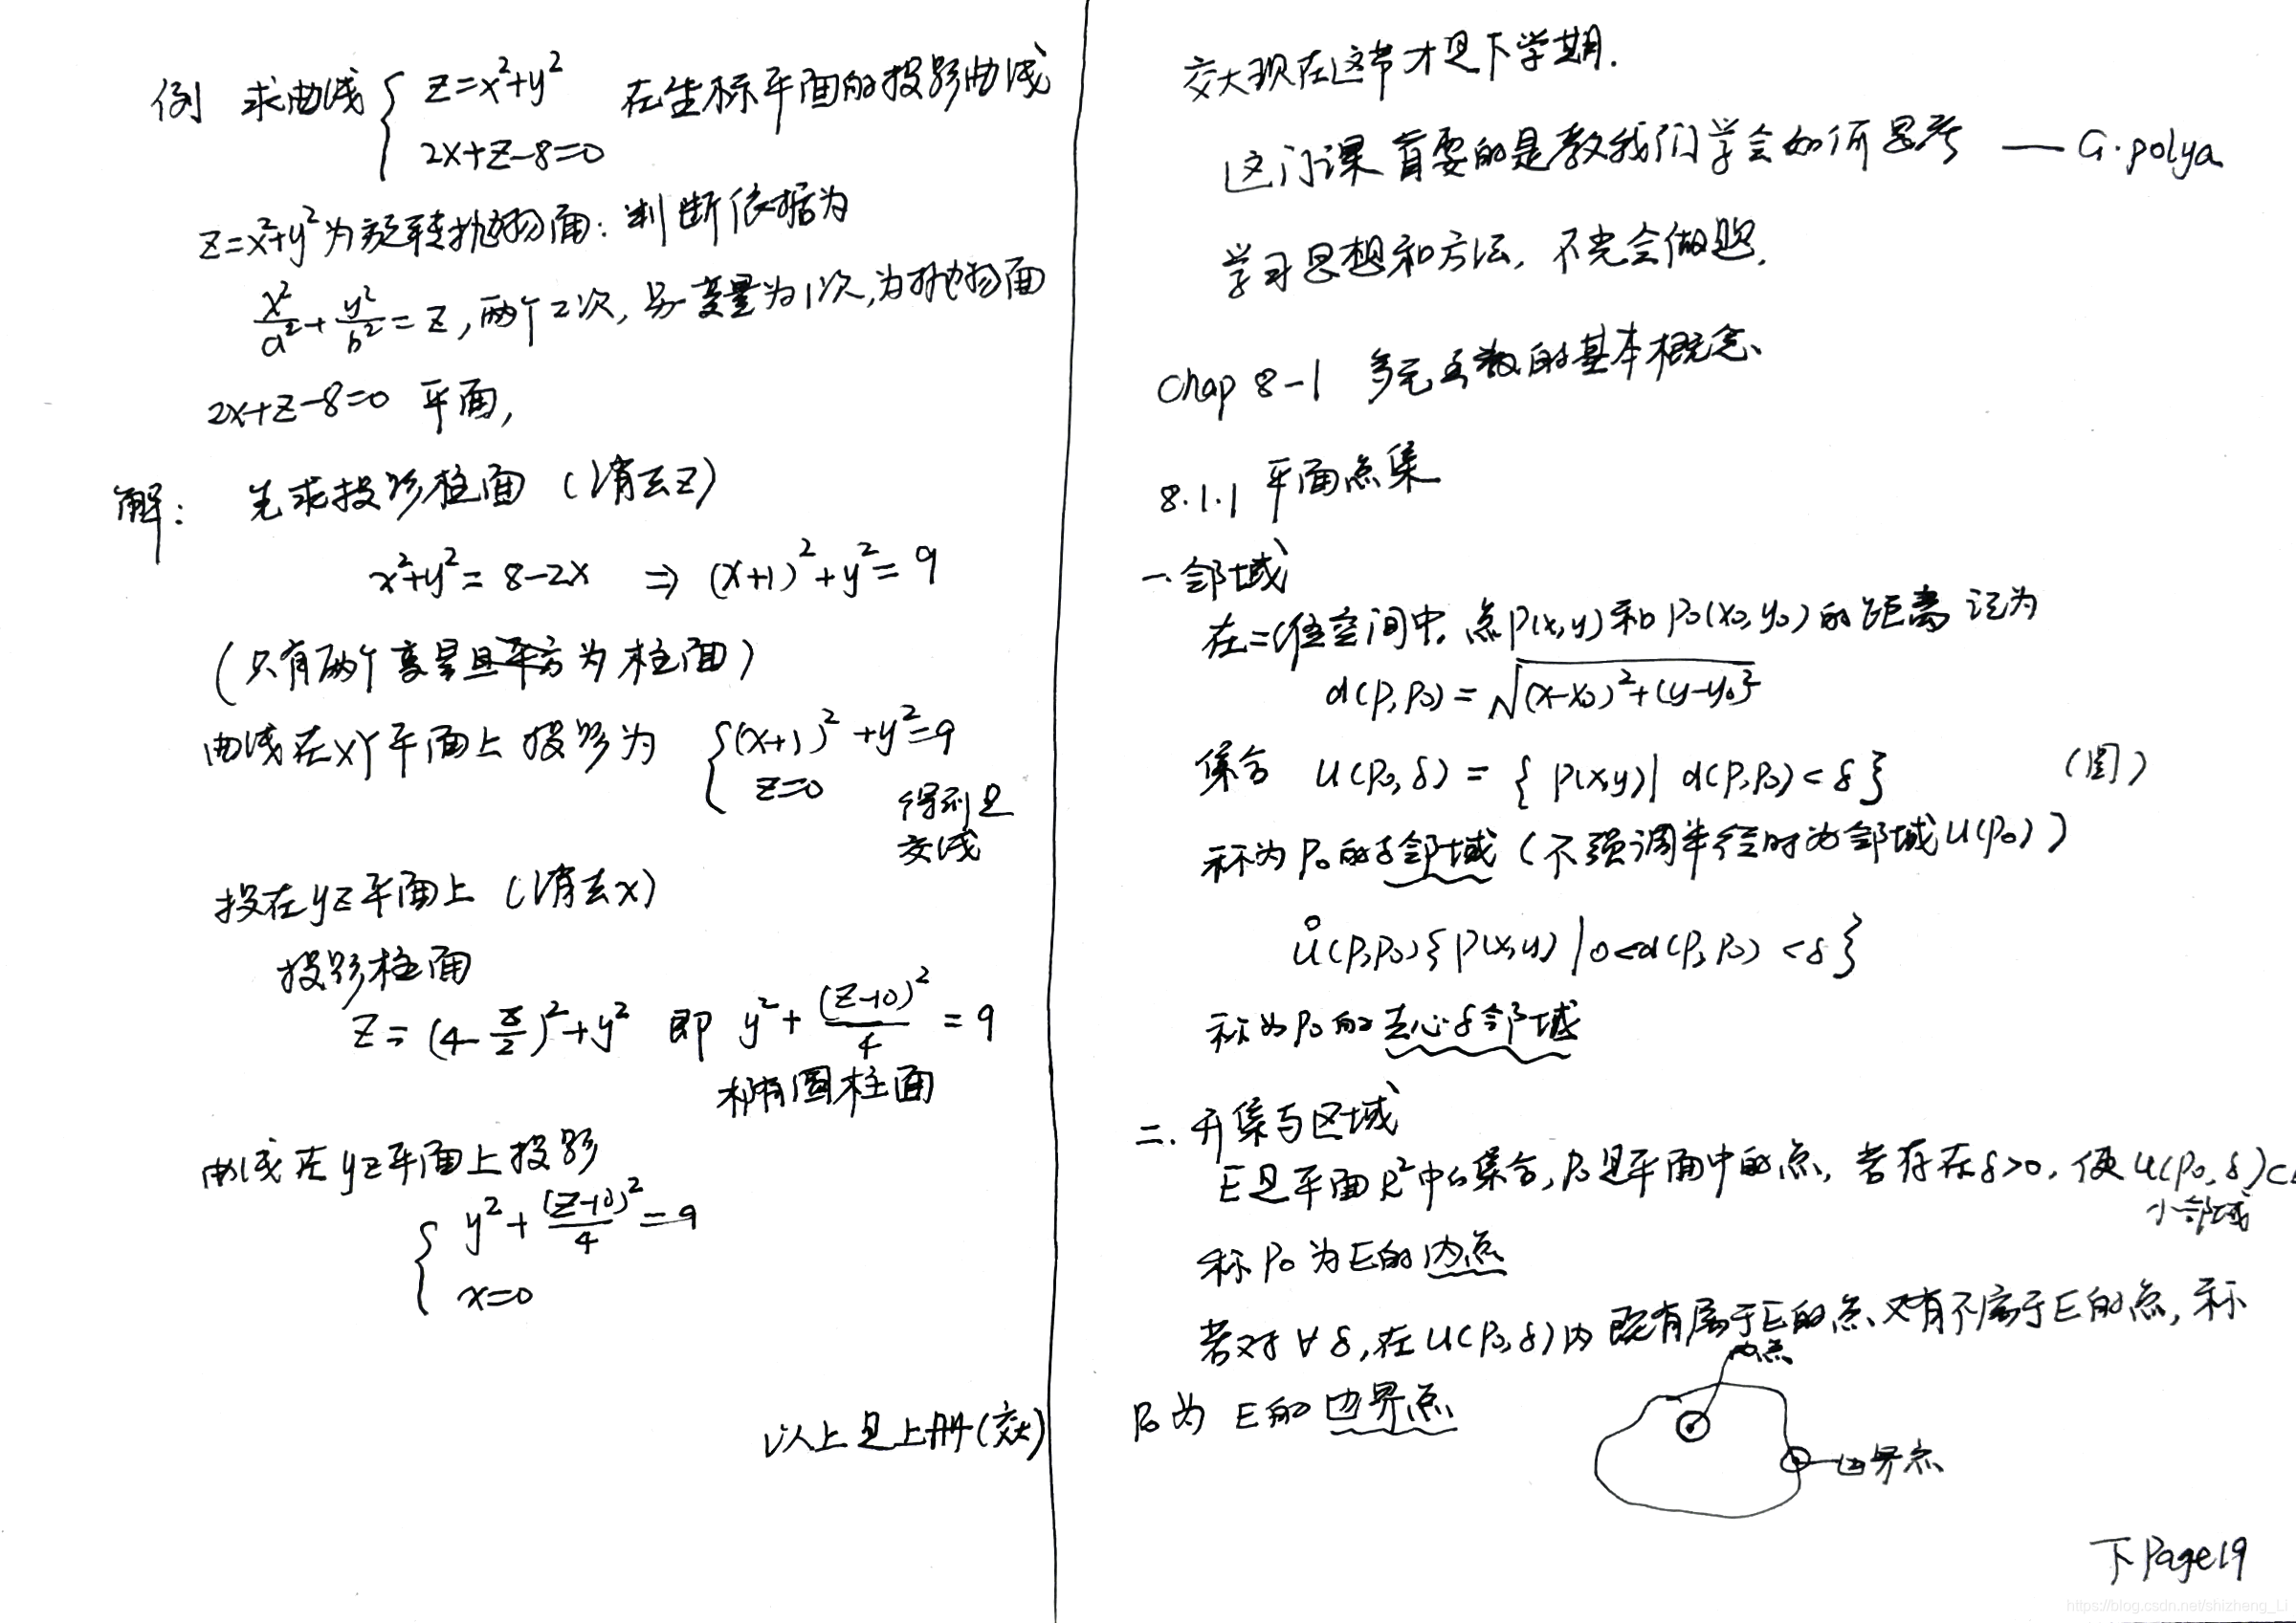 例 求曲线 { z=x²+y² 在坐标平面的投影曲线
2x+z-8=0
z=x²+y²为旋转抛物面: 判断依据为
x²/a²+y²/b²=z, 两个2次, 另一变量为1次, 为抛物面
2x+z-8=0 平面,
解: 先求投影柱面 (消去z)
x²+y²=8-2x ⇒ (x+1)²+y²=9
(只有两个变量且平方为柱面)
曲线在XY平面上投影为 { (x+1)²+y²=9
z=0
得到是
交线
投在yz平面上 (消去x)
投影柱面
z=(4-z/2)²+y² 即 y²+(z-10)²/4=9
椭圆柱面
曲线在yz平面上投影
{ y²+(z-10)²/4=9
x=0
以上是上册(交大)
交大现在这节才是下学期.
这门课首要的是教我们学会如何思考 — G.polya
学习思想和方法, 不光会做题.
Chap 8-1 多元函数的基本概念
8.1.1 平面点集
一.邻域
在二维空间中, 点P(x,y)和P₀(x₀,y₀)的距离记为
d(P,P₀)=√(x-x₀)²+(y-y₀)²
集合 U(P₀,δ)={P(x,y)| d(P,P₀)<δ} (图)
称为P₀的δ邻域(不强调半径时为邻域U(P₀))
Ů(P,P₀){P(x,y)|0<d(P,P₀)<δ}
称为P₀的去心δ邻域
二.开集与区域
E是平面R²中的集合, P₀是平面中的点, 若存在δ>0, 使U(P₀,δ)⊂
小邻域
称P₀为E的内点
若对∀δ, 在U(P₀,δ)内既有属于E的点又有不属于E的点, 称
内点
P₀为E的边界点
边界点
下Page19
https://blog.csdn.net/shizheng_Li